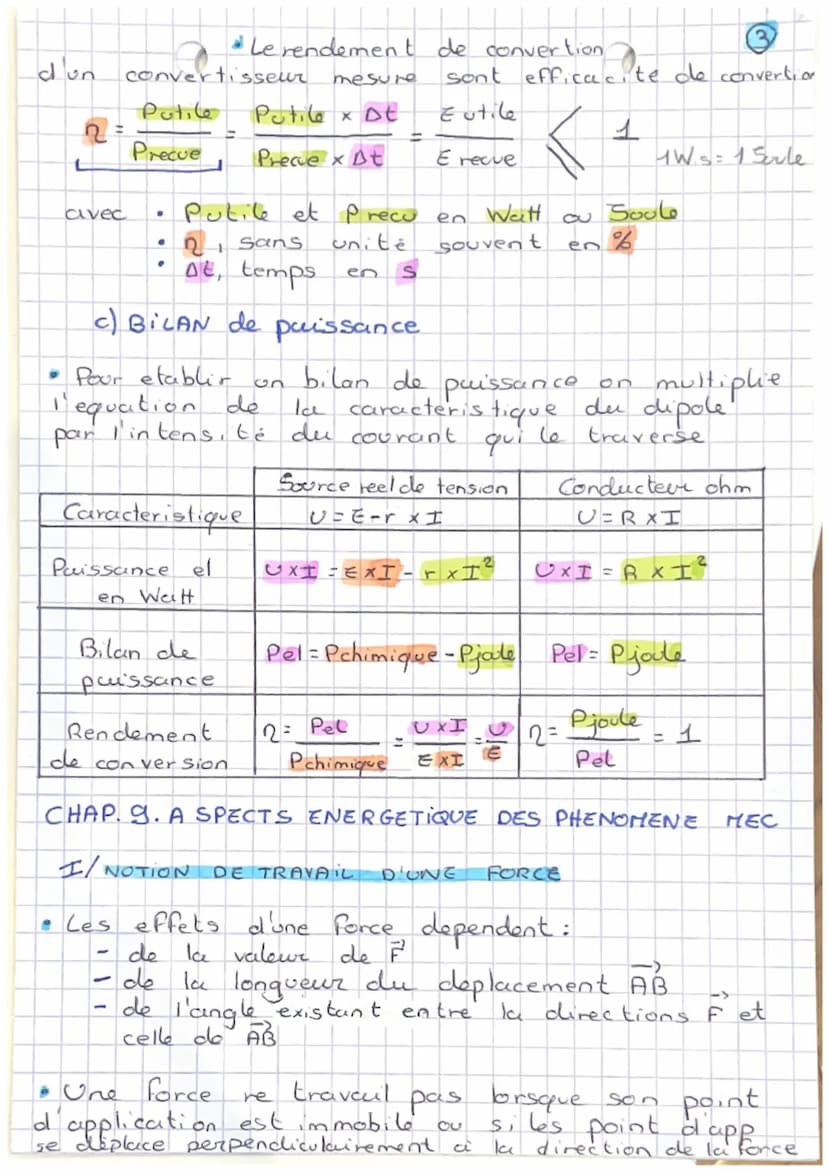 3
• Le rendement de convertion
d'un convertisseur mesure sont efficacite de convertion
η = Putile / Precue = Putile x Δt / Precue x Δt = E utile / E recue ⩽ 1
1W.s = 1 Joule
avec • Putile et Precu en Watt ou Joule
• η, sans unité souvent en %
• Δt, temps en s
c) BiLAN de puissance
• Pour etablir un bilan de puissance on multiplie
l'equation de la caracteristique du dipole
par l'intensité du courant qui le traverse
Source reel de tension | Conducteur ohm
Caracteristique | U = E-r x I | U = R x I
Puissance el en Watt | U x I = E x I - r x I² | U x I = R x I²
Bilan de puissance | Pel = Pchimique - Pjoule | Pel = Pjoule
Rendement de conversion | η = Pel / Pchimique = U x I / E x I = U / E | η = Pjoule / Pel = 1
CHAP. 9. A SPECTS ENERGETiQUE DES PHENOMENE MEC
I/ NOTION DE TRAVAiL D'UNE FORCE
• Les effets d'une force dependent :
- de la valeur de F⃗
- de la longueur du deplacement A⃗B⃗
- de l'angle existant entre la directions F⃗ et
celle de A⃗B⃗
• Une force ne travail pas lorsque son point
d'application est immobile ou si les point d'app
se déplace perpendiculairement à la direction de la force